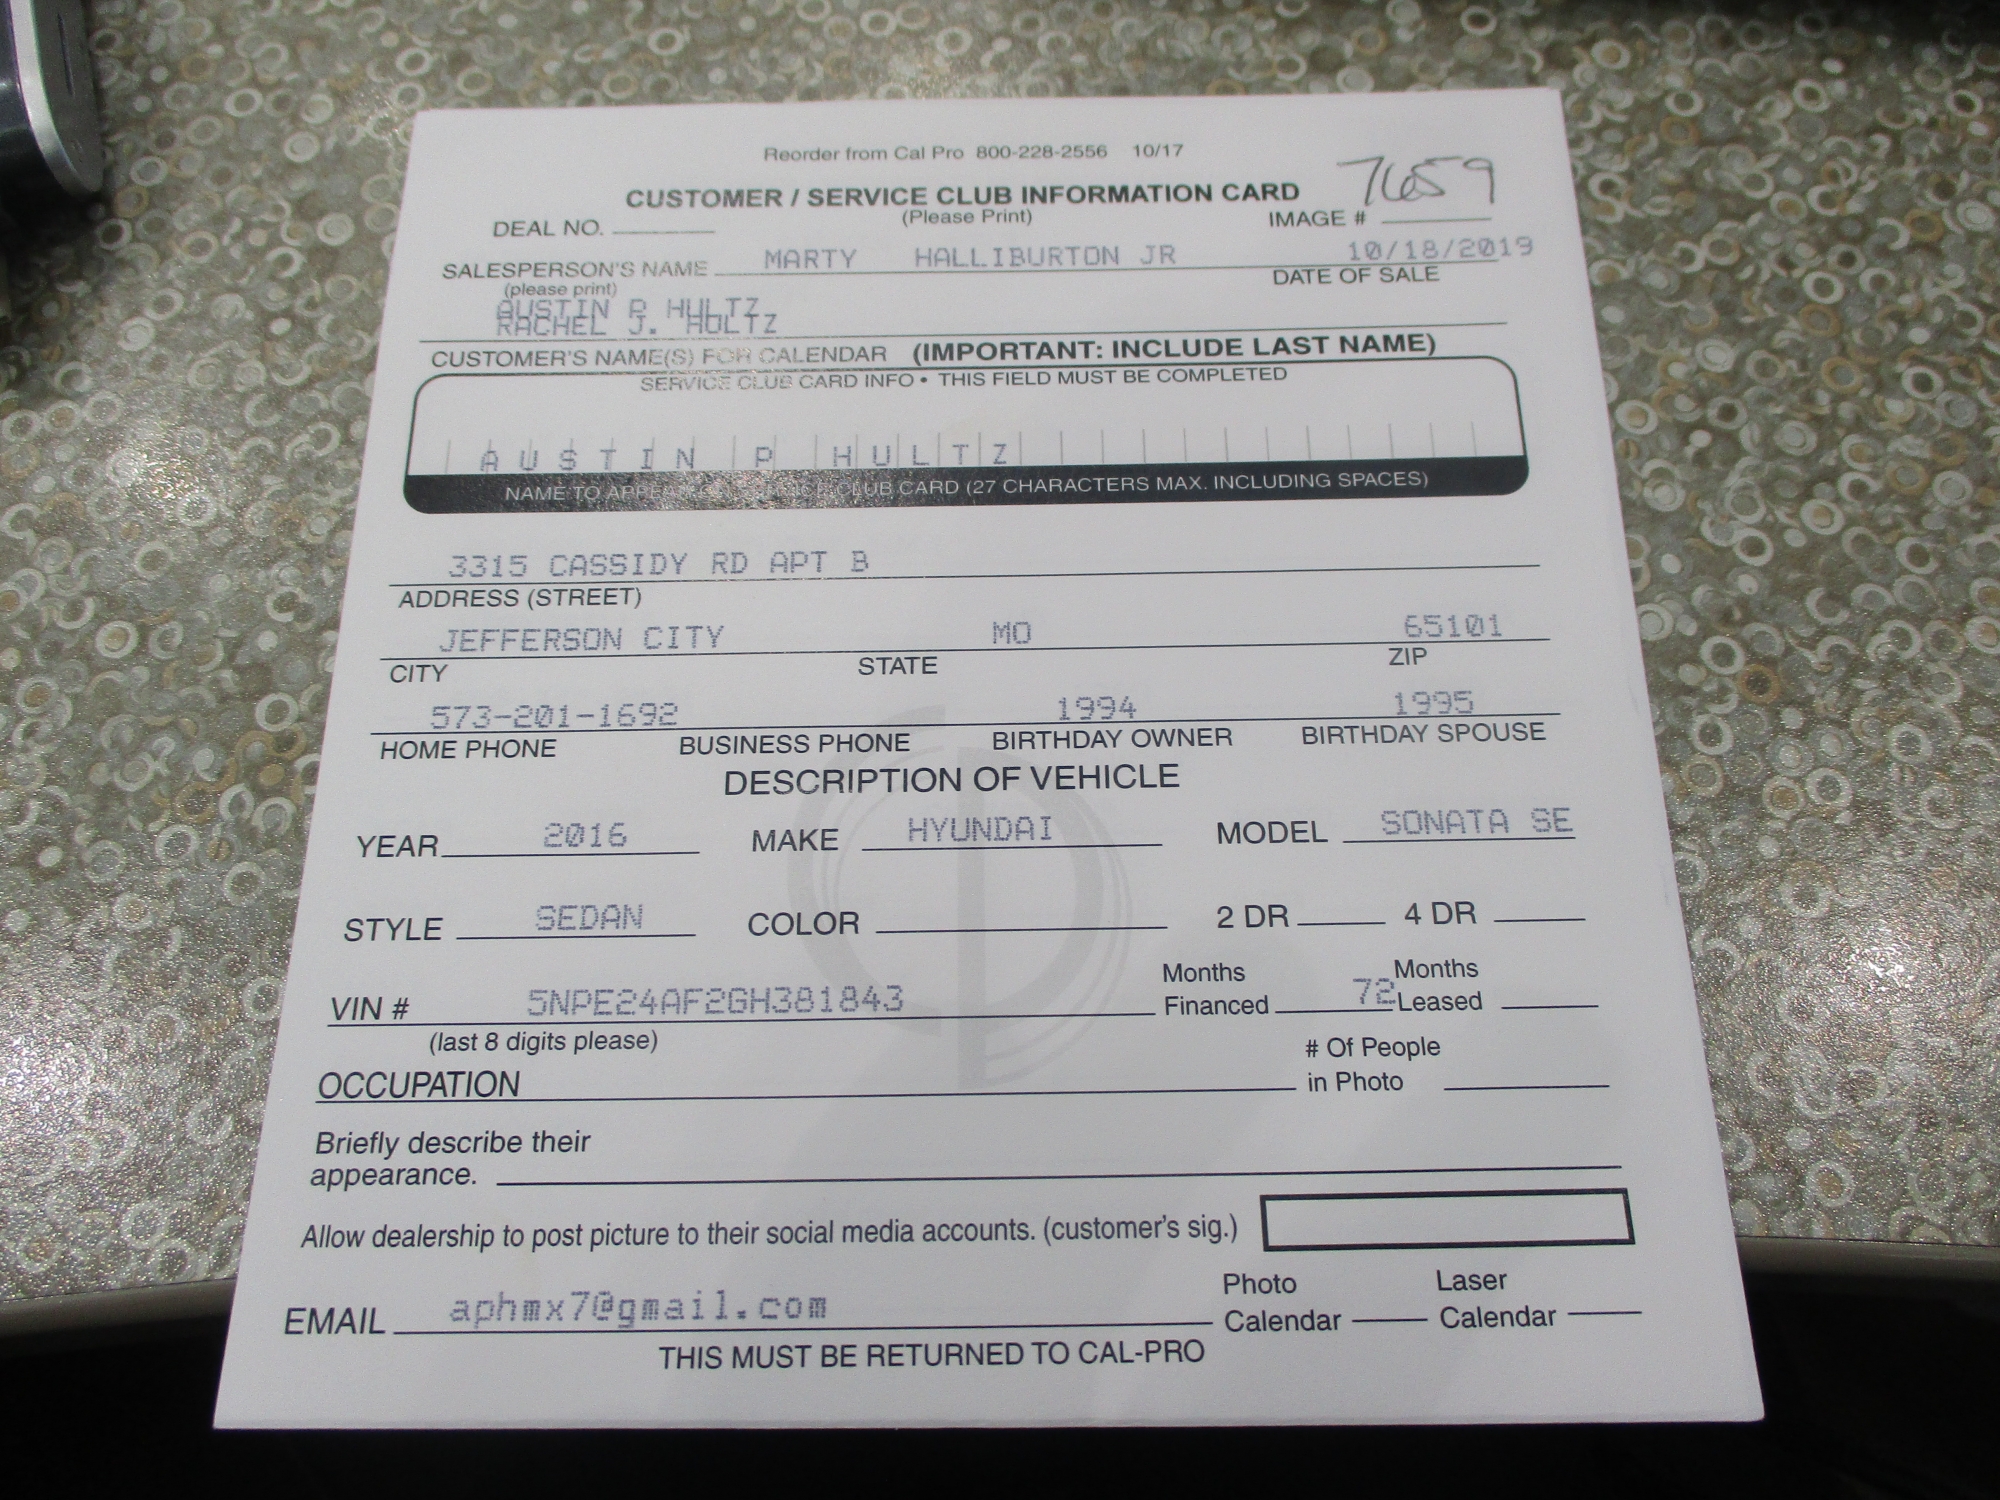 Reorder from Cal Pro 800-228-2556 10/17
CUSTOMER / SERVICE CLUB INFORMATION CARD 7659
DEAL NO. (Please Print) IMAGE #
SALESPERSON'S NAME MARTY HALLIBURTON JR 10/18/2019
(please print) DATE OF SALE
AUSTIN P HULTZ
RACHEL J. HULTZ
CUSTOMER'S NAME(S) FOR CALENDAR (IMPORTANT: INCLUDE LAST NAME)
SERVICE CLUB CARD INFO • THIS FIELD MUST BE COMPLETED
AUSTIN P HULTZ
NAME TO APPEAR ON SERVICE CLUB CARD (27 CHARACTERS MAX. INCLUDING SPACES)
3315 CASSIDY RD APT B
ADDRESS (STREET)
JEFFERSON CITY MO 65101
CITY STATE ZIP
573-201-1692 1994 1995
HOME PHONE BUSINESS PHONE BIRTHDAY OWNER BIRTHDAY SPOUSE
DESCRIPTION OF VEHICLE
YEAR 2016 MAKE HYUNDAI MODEL SONATA SE
STYLE SEDAN COLOR 2 DR 4 DR
Months Months
VIN # 5NPE24AF2GH381843 Financed 72 Leased
(last 8 digits please)
# Of People
OCCUPATION in Photo
Briefly describe their
appearance.
Allow dealership to post picture to their social media accounts. (customer's sig.)
Photo Laser
EMAIL aphmx7@gmail.com Calendar Calendar
THIS MUST BE RETURNED TO CAL-PRO